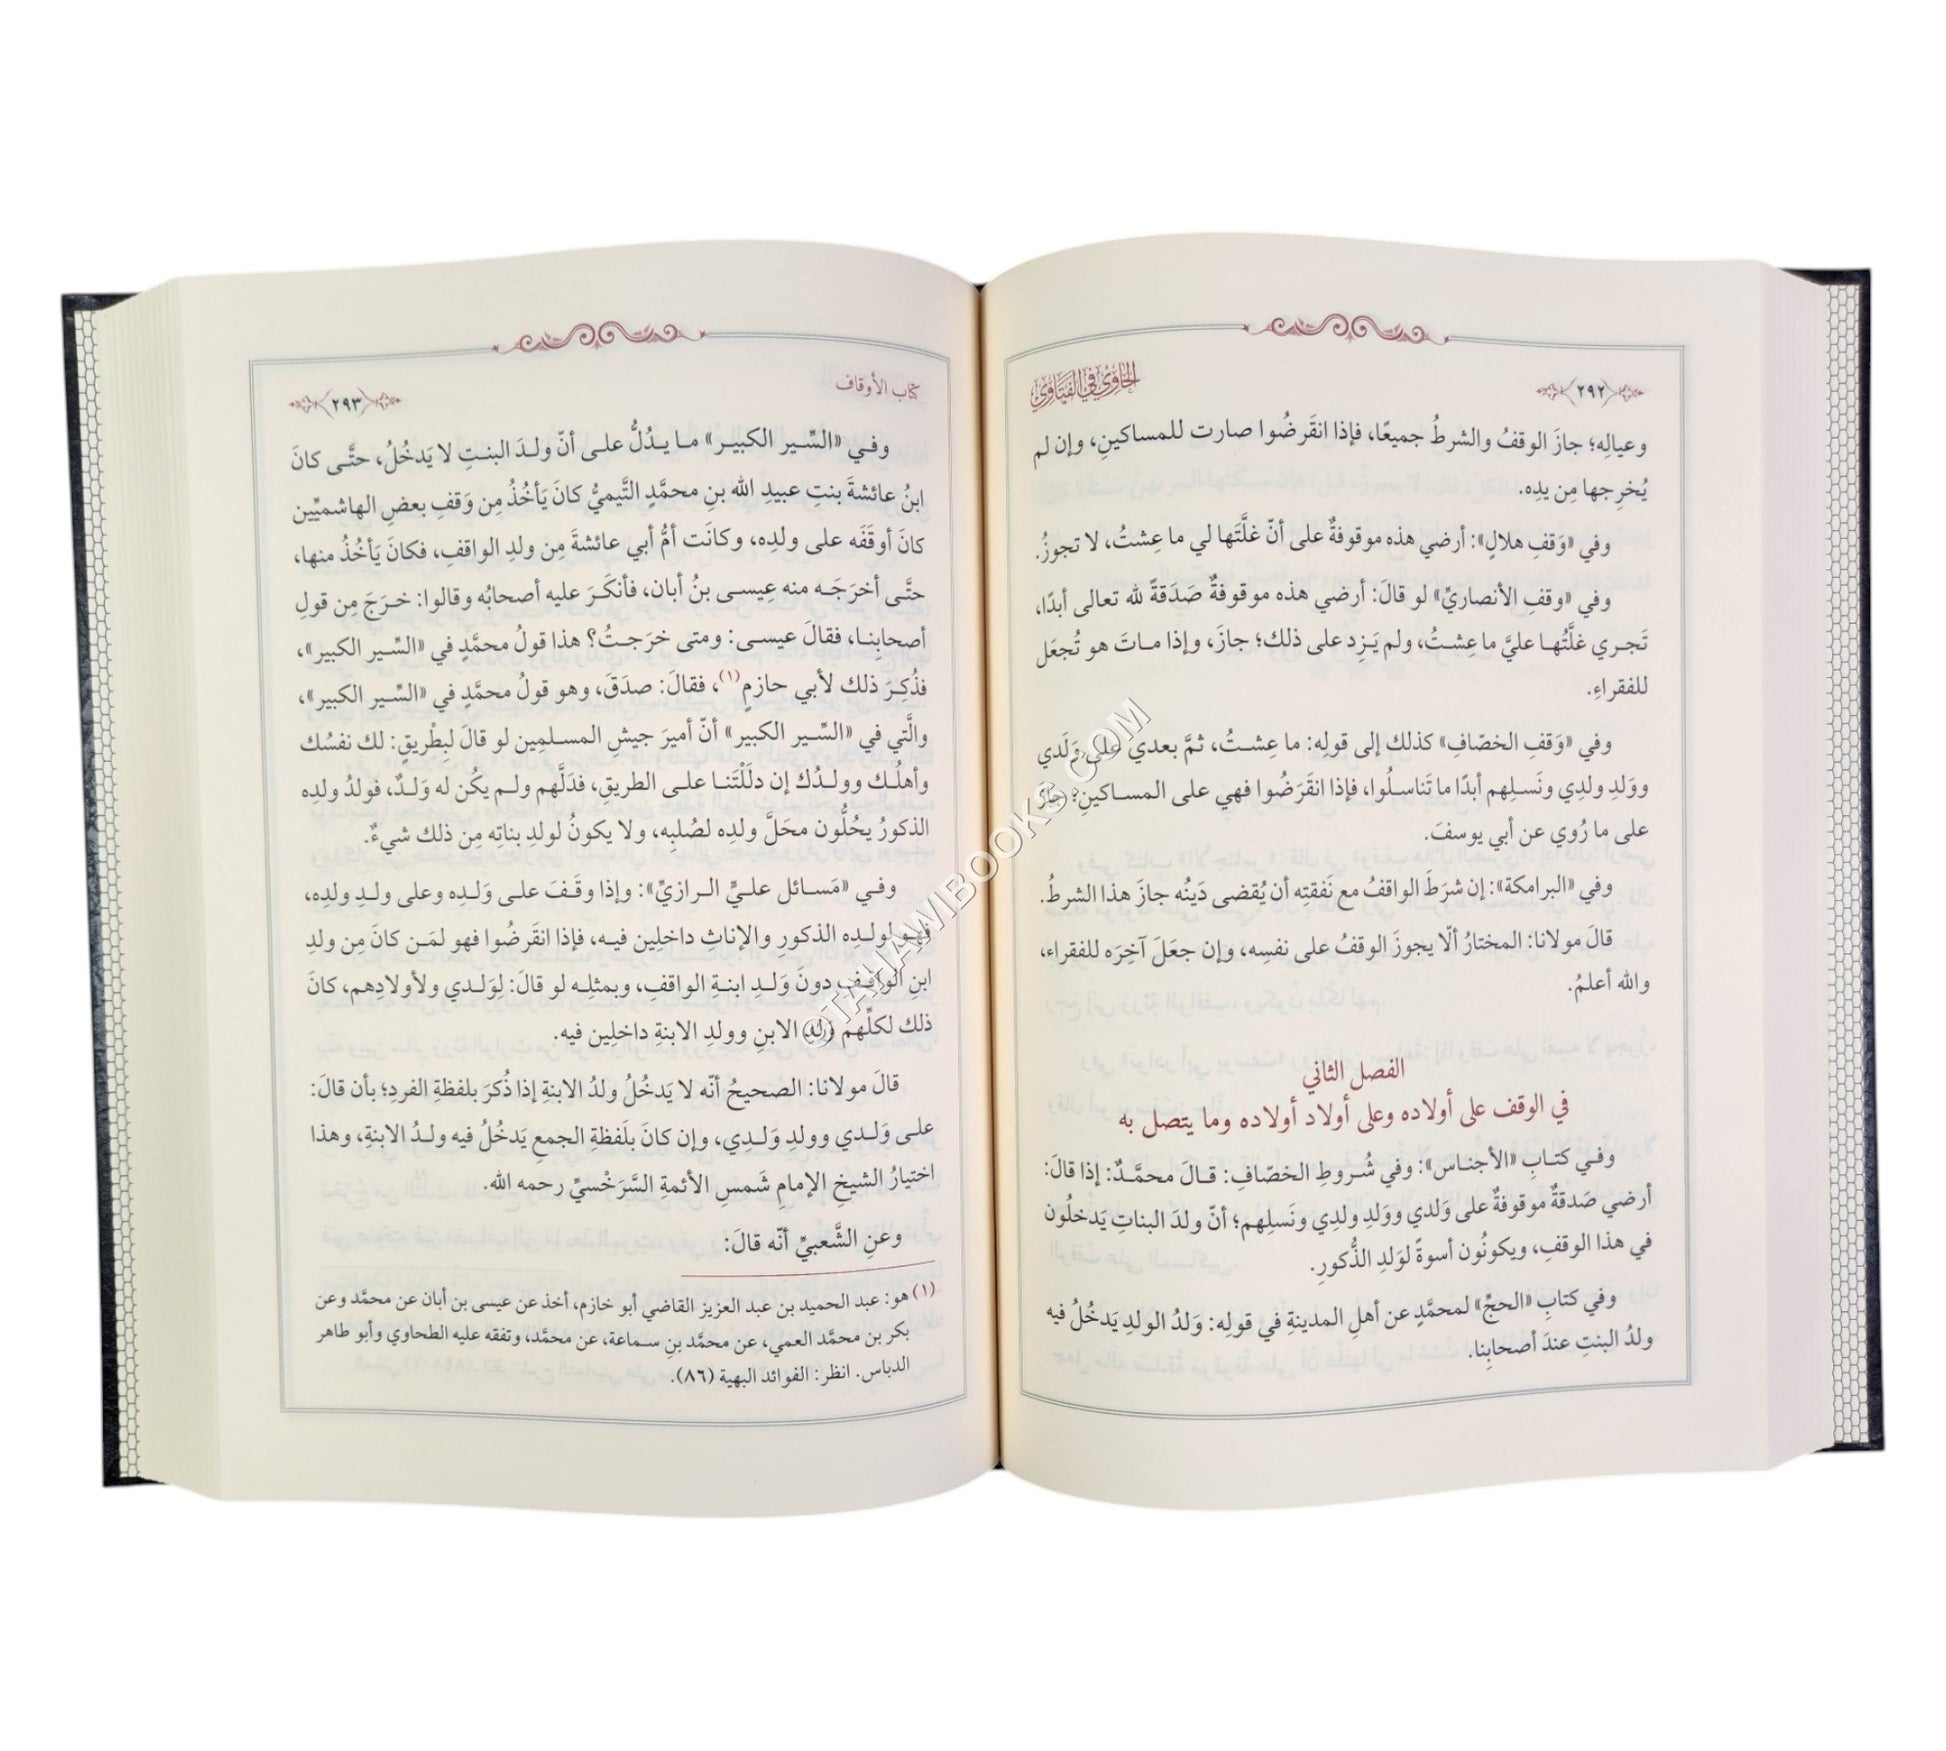 ٢٩٢
الحاوي في الفتاوي
وعيالِه؛ جازَ الوقفُ والشرطُ جميعًا، فإذا انقَرضُوا صارت للمساكينِ، وإن لم
يُخرِجها مِن يدِه.
وفي «وَقفِ هلالٍ»: أرضي هذه موقوفةٌ على أنّ غلَّتَها لي ما عِشتُ، لا تجوزُ.
وفي «وقفِ الأنصاريِّ» لو قالَ: أرضي هذه موقوفةٌ صَدَقةً لله تعالى أبدًا،
تَجري غلَّتُها عليَّ ما عِشتُ، ولم يَزِد على ذلك؛ جازَ، وإذا ماتَ هو تُجعَل
للفقراءِ.
وفي «وَقفِ الخصّافِ» كذلك إلى قولِه: ما عِشتُ، ثمَّ بعدي على وَلَدي
ووَلدِ ولدِي ونَسلِهم أبدًا ما تَناسلُوا، فإذا انقَرَضُوا فهي على المساكينِ؛ جازَ
على ما رُوي عن أبي يوسفَ.
وفي «البرامكة»: إن شرَطَ الواقفُ مع نَفقتِه أن يُقضى دَينُه جازَ هذا الشرطُ.
قالَ مولانا: المختارُ ألّا يجوزَ الوقفُ على نفسِه، وإن جعَلَ آخِرَه للفقراء،
والله أعلمُ.
الفصل الثاني
في الوقف على أولاده وعلى أولاد أولاده وما يتصل به
وفي كتابِ «الأجناس»: وفي شُروطِ الخصّافِ: قالَ محمَّدٌ: إذا قالَ:
أرضي صَدقةٌ موقوفةٌ على وَلدي ووَلدِ ولدِي ونَسلِهم؛ أنّ ولدَ البناتِ يَدخلُون
في هذا الوقفِ، ويكونُون أسوةً لوَلدِ الذُّكورِ.
وفي كتابِ «الحجِّ» لمحمَّدٍ عن أهلِ المدينةِ في قولِه: وَلدُ الولدِ يَدخُلُ فيه
ولدُ البنتِ عندَ أصحابِنا.
كتاب الأوقاف
٢٩٣
وفي «السِّير الكبير» ما يدُلُّ على أنّ ولدَ البنتِ لا يَدخُلُ، حتَّى كانَ
ابنُ عائشةَ بنتِ عبيدِ الله بنِ محمَّدٍ التَّيميُّ كانَ يَأخُذُ مِن وَقفِ بعضِ الهاشميِّين
كانَ أوقَفَه على ولدِه، وكانَت أمُّ أبي عائشةَ مِن ولدِ الواقفِ، فكانَ يَأخُذُ منها،
حتَّى أخرَجَه منه عِيسى بنُ أبان، فأنكَرَ عليه أصحابُه وقالوا: خرَجَ مِن قولِ
أصحابِنا، فقالَ عيسى: ومتى خرَجتُ؟ هذا قولُ محمَّدٍ في «السِّير الكبير»،
فذُكِرَ ذلك لأبي حازمٍ(١)، فقالَ: صدَقَ، وهو قولُ محمَّدٍ في «السِّير الكبير»،
والَّتي في «السِّير الكبير» أنّ أميرَ جيشِ المسلمِين لو قالَ لبِطْريقٍ: لك نفسُك
وأهلُك وولدُك إن دلَلْتَنا على الطريقِ، فدَلَّهم ولم يكُن له وَلدٌ، فولدُ ولدِه
الذكورُ يحُلُّون محَلَّ ولدِه لصُلبِه، ولا يكونُ لولدِ بناتِه مِن ذلك شيءٌ.
وفي «مَسائل عليِّ الرازيِّ»: وإذا وقَفَ على وَلدِه وعلى ولدِ ولدِه،
فهو لولدِه الذكورِ والإناثِ داخلِين فيه، فإذا انقرضُوا فهو لمَن كانَ مِن ولدِ
ابنِ الواقفِ دونَ وَلدِ ابنةِ الواقفِ، وبمثلِه لو قالَ: لِوَلدي ولأولادِهم، كانَ
ذلك لكلِّهم وَلدِ الابنِ وولدِ الابنةِ داخلِين فيه.
قالَ مولانا: الصحيحُ أنّه لا يَدخُلُ ولدُ الابنةِ إذا ذُكرَ بلفظةِ الفردِ؛ بأن قالَ:
على وَلدي وولدِ وَلدِي، وإن كانَ بلَفظةِ الجمعِ يَدخُلُ فيه ولدُ الابنةِ، وهذا
اختيارُ الشيخِ الإمامِ شَمسِ الأئمةِ السَّرَخْسيِّ رحمه الله.
وعنِ الشَّعبيِّ أنّه قالَ:
(١) هو: عبد الحميد بن عبد العزيز القاضي أبو خازم، أخذ عن عيسى بن أبان عن محمَّد وعن
بكر بن محمَّد العمي، عن محمَّد بنِ سماعة، عن محمَّد، وتفقه عليه الطحاوي وأبو طاهر
الدباس. انظر: الفوائد البهية (٨٦).
©TAHAWIBOOKS.COM